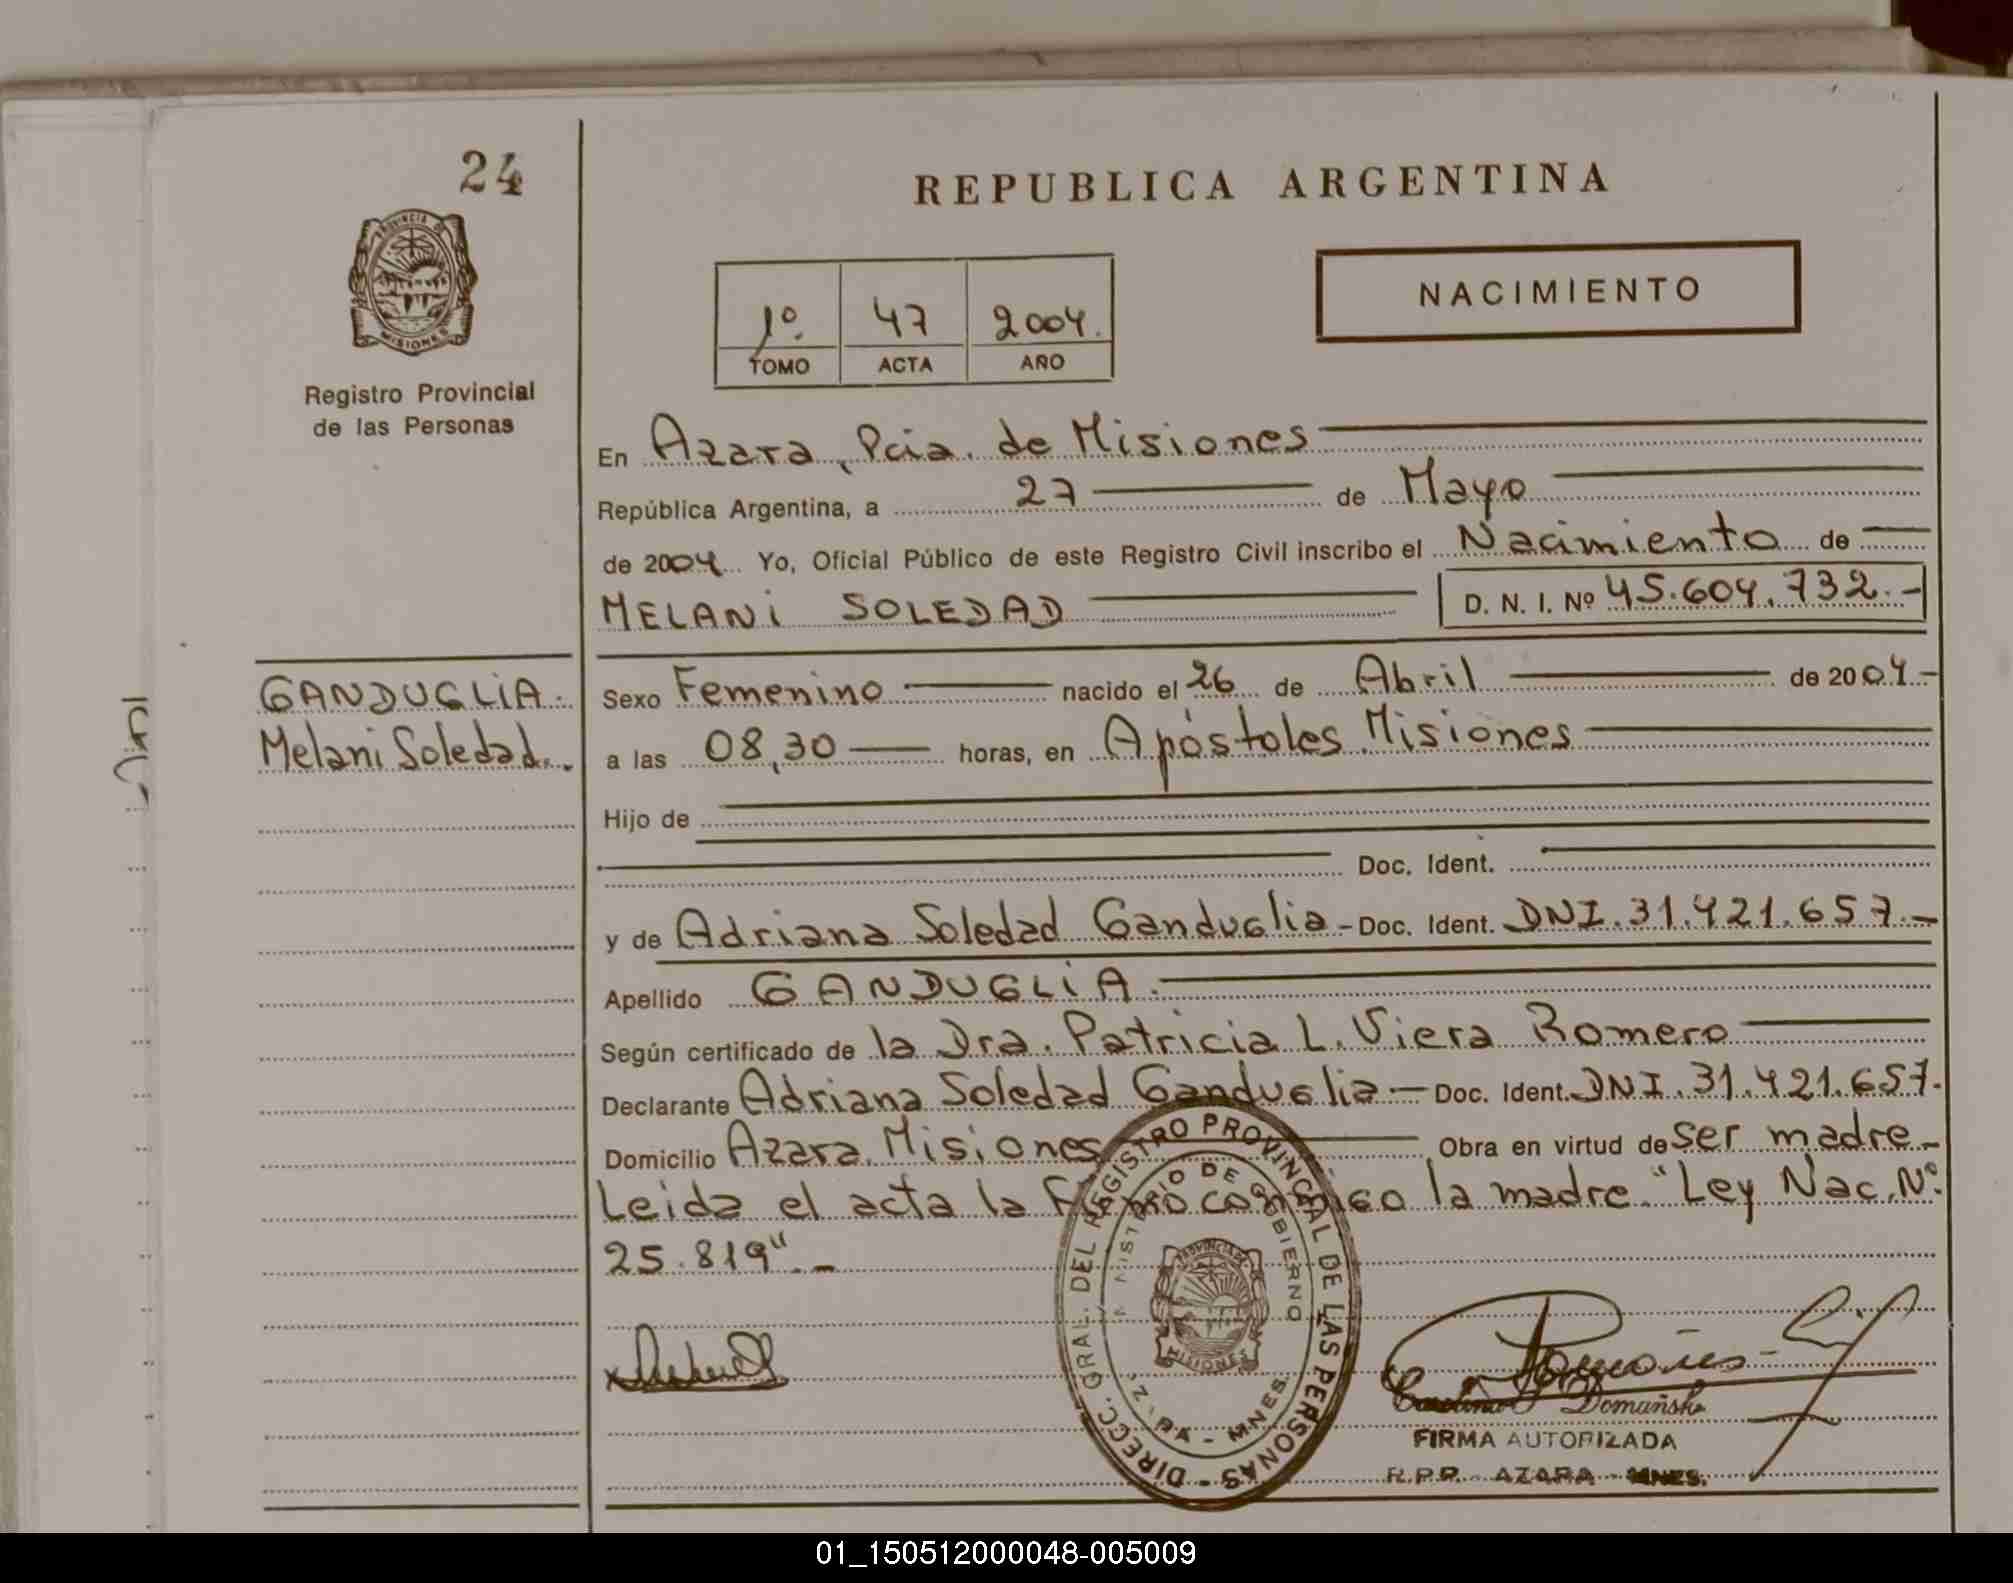 24
REPUBLICA ARGENTINA
PROVINCIA DE
MISIONES
Registro Provincial
de las Personas
1º. 47 2004.
TOMO ACTA AÑO
NACIMIENTO
En Azara, Pcia. de Misiones
República Argentina, a 27 de Mayo
de 2004 Yo, Oficial Público de este Registro Civil inscribo el Nacimiento de
MELANI SOLEDAD D. N. I. Nº 45.604.732.-
GANDUGLIA.
Melani Soledad.
Sexo Femenino nacido el 26 de Abril de 2004-
a las 08,30 horas, en Apóstoles Misiones
Hijo de
Doc. Ident.
y de Adriana Soledad Ganduglia - Doc. Ident. DNI.31.421.657.-
Apellido GANDUGLIA.
Según certificado de la Dra. Patricia L. Viera Romero
Declarante Adriana Soledad Ganduglia - Doc. Ident. DNI.31.421.657.
Domicilio Azara. Misiones Obra en virtud de ser madre-
Leida el acta la firmó conmigo la madre "Ley Nac. Nº.
25.819".-
DIRECC. GRAL. DEL REGISTRO PROVINCIAL DE LAS PERSONAS -
MINISTERIO DE GOBIERNO
PROVINCIA DE
MISIONES
AZARA - MNES.
Carolina Domañski
FIRMA AUTORIZADA
R.P.P. - AZARA - MNES.
01_150512000048-005009